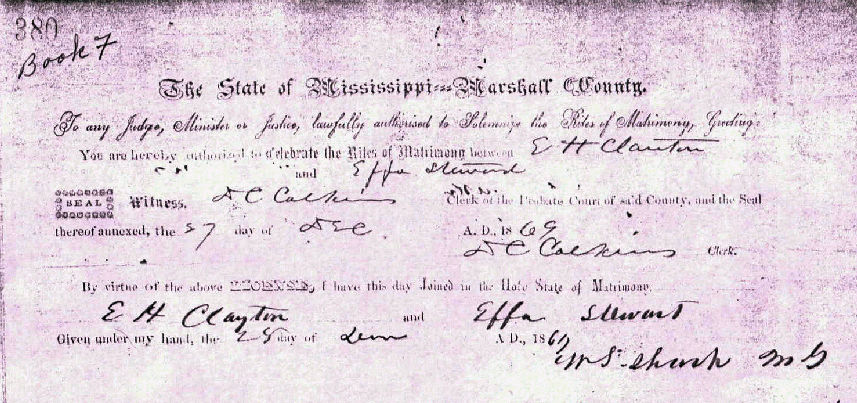 380
Book 7
The State of Mississippi--Marshall County.
To any Judge, Minister or Justice, lawfully authorised to Solemnize the Rites of Matrimony, Greeting:
You are hereby authorized to celebrate the Rites of Matrimony between E H Clanton
and Effa Steward
SEAL Witness, D C Calkins Clerk of the Probate Court of said County, and the Seal
thereof annexed, the 27 day of DEC A. D., 1869
D C Calkins Clerk.
By virtue of the above LICENSE, I have this day Joined in the Holy State of Matrimony,
E H Clayton and Effa Stewart
Given under my hand, the 28 day of A D., 186
M G